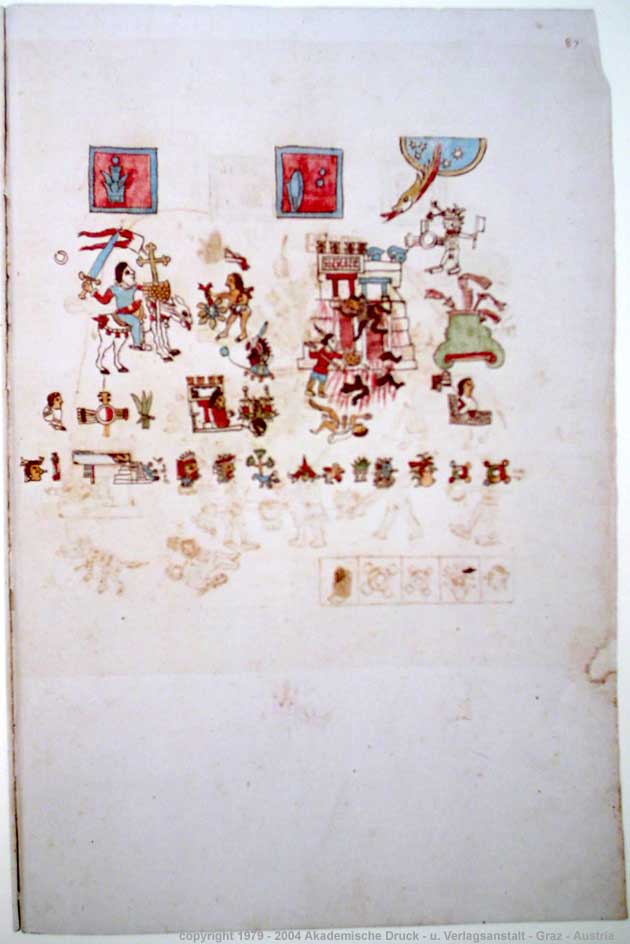 87
copyright 1979 - 2004 Akademische Druck - u. Verlagsanstalt - Graz - Austria